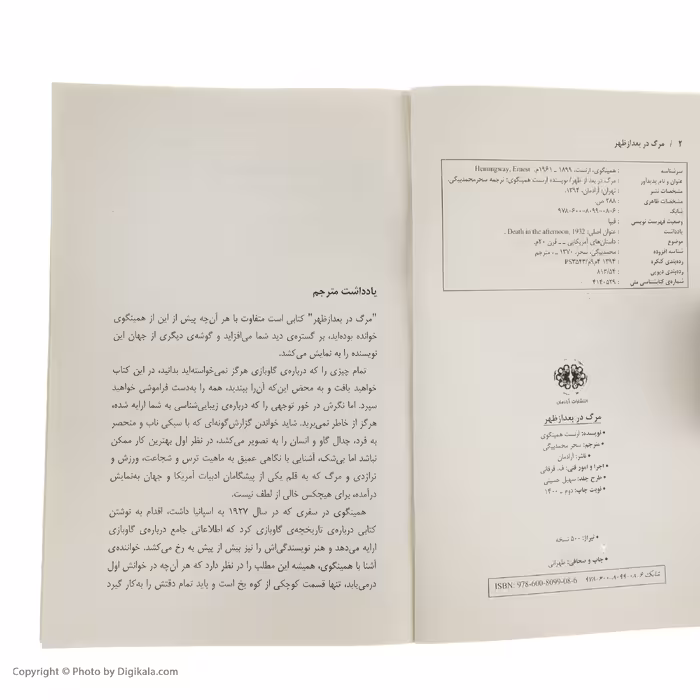 ۲ / مرگ در بعدازظهر
سرشناسه : همینگوی، ارنست، ۱۸۹۹ ـ ۱۹۶۱م. Hemingway, Ernest
عنوان و نام پدیدآور : مرگ در بعد از ظهر/ نویسنده ارنست همینگوی؛ ترجمه سحرمحمدبیگی.
مشخصات نشر : تهران: آرادمان، ۱۳۹۴.
مشخصات ظاهری : ۲۸۸ ص.
شابک : ۹۷۸-۶۰۰-۸۰۹۹-۰۸-۶
وضعیت فهرست نویسی : فیپا
یادداشت : عنوان اصلی: Death in the afternoon, 1932.
موضوع : داستان‌های آمریکایی -- قرن ۲۰م.
شناسه افزوده : محمدبیگی، سحر، ۱۳۷۰ -، مترجم
رده‌بندی کنگره : ۱۳۹۴
رده‌بندی دیویی : ۸۱۳/۵۴
شماره‌ی کتابشناسی ملی : ۴۱۴۰۵۲۹
انتشارات آرادمان
مرگ در بعدازظهر
• نویسنده: ارنست همینگوی
• مترجم: سحر محمدبیگی
• ناشر: آرادمان
• اجرا و امور فنی: ف. قرقانی
• طرح جلد: سهیل حسینی
• نوبت چاپ: دوم ـ ۱۴۰۰
• تیراژ: ۵۰۰ نسخه
• چاپ و صحافی: طهرانی
شابک ۶-۰۸-۸۰۹۹-۶۰۰-۹۷۸ ISBN: 978-600-8099-08-6
یادداشت مترجم
"مرگ در بعدازظهر" کتابی است متفاوت با هر آن‌چه پیش از این از همینگوی
خوانده بوده‌اید، بر گستره‌ی دید شما می‌افزاید و گوشه‌ی دیگری از جهان این
نویسنده را به نمایش می‌کشد.
تمام چیزی را که درباره‌ی گاوبازی هرگز نمی‌خواسته‌اید بدانید، در این کتاب
خواهید یافت و به محض این‌که آن‌را ببندید، همه را به‌دست فراموشی خواهید
سپرد. اما نگرش در خور توجهی را که درباره‌ی زیبایی‌شناسی به شما ارایه شده،
هرگز از خاطر نمی‌برید. شاید خواندن گزارش‌گونه‌ای که با سبکی ناب و منحصر
به فرد، جدال گاو و انسان را به تصویر می‌کشد، در نظر اول بهترین کار ممکن
نباشد اما بی‌شک، آشنایی با نگاهی عمیق به ماهیت ترس و شجاعت، ورزش و
تراژدی و مرگ که به قلم یکی از پیشگامان ادبیات آمریکا و جهان به‌نمایش
درآمده، برای هیچکس خالی از لطف نیست.
همینگوی در سفری که در سال ۱۹۲۷ به اسپانیا داشت، اقدام به نوشتن
کتابی درباره‌ی تاریخچه‌ی گاوبازی کرد که اطلاعاتی جامع درباره‌ی گاوبازی
ارایه می‌دهد و هنر نویسندگی‌اش را نیز بیش از پیش به رخ می‌کشد. خواننده‌ی
آشنا با همینگوی، همیشه این مطلب را در نظر دارد که هر آن‌چه در خوانش اول
درمی‌یابد، تنها قسمت کوچکی از کوه یخ است و باید تمام دقتش را به‌کار گیرد
Copyright © Photo by Digikala.com